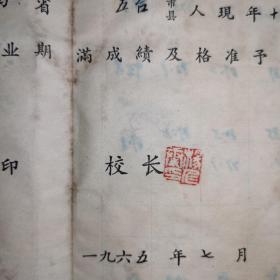 省 五台 市县 人 現年十
业期 滿成績及格准予
印 校长
一九六五年七月